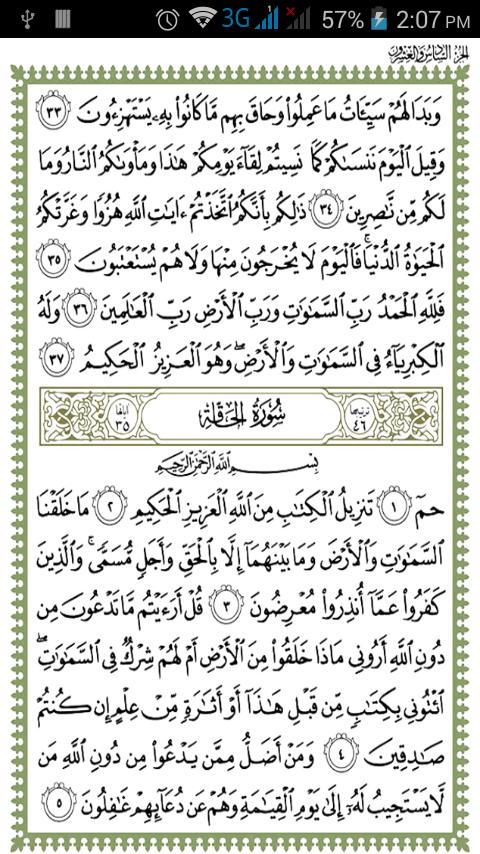 3G 57% 2:07 PM
الجزء السادس والعشرون
وَبَدَا لَهُمْ سَيِّئَاتُ مَا عَمِلُوا۟ وَحَاقَ بِهِم مَّا كَانُوا۟ بِهِۦ يَسْتَهْزِءُونَ ٣٣
وَقِيلَ ٱلْيَوْمَ نَنسَىٰكُمْ كَمَا نَسِيتُمْ لِقَآءَ يَوْمِكُمْ هَٰذَا وَمَأْوَىٰكُمُ ٱلنَّارُ وَمَا
لَكُم مِّن نَّٰصِرِينَ ٣٤ ذَٰلِكُم بِأَنَّكُمُ ٱتَّخَذْتُمْ ءَايَٰتِ ٱللَّهِ هُزُوًا وَغَرَّتْكُمُ
ٱلْحَيَوٰةُ ٱلدُّنْيَا ۚ فَٱلْيَوْمَ لَا يُخْرَجُونَ مِنْهَا وَلَا هُمْ يُسْتَعْتَبُونَ ٣٥
فَلِلَّهِ ٱلْحَمْدُ رَبِّ ٱلسَّمَٰوَٰتِ وَرَبِّ ٱلْأَرْضِ رَبِّ ٱلْعَٰلَمِينَ ٣٦ وَلَهُ
ٱلْكِبْرِيَآءُ فِى ٱلسَّمَٰوَٰتِ وَٱلْأَرْضِ ۖ وَهُوَ ٱلْعَزِيزُ ٱلْحَكِيمُ ٣٧
ترتيبها ٤٦ سُورَةُ الحَاقَّة آياتها ٣٥
بِسْمِ ٱللَّهِ ٱلرَّحْمَٰنِ ٱلرَّحِيمِ
حمٓ ١ تَنزِيلُ ٱلْكِتَٰبِ مِنَ ٱللَّهِ ٱلْعَزِيزِ ٱلْحَكِيمِ ٢ مَا خَلَقْنَا
ٱلسَّمَٰوَٰتِ وَٱلْأَرْضَ وَمَا بَيْنَهُمَآ إِلَّا بِٱلْحَقِّ وَأَجَلٍ مُّسَمًّى ۚ وَٱلَّذِينَ
كَفَرُوا۟ عَمَّآ أُنذِرُوا۟ مُعْرِضُونَ ٣ قُلْ أَرَءَيْتُم مَّا تَدْعُونَ مِن
دُونِ ٱللَّهِ أَرُونِى مَاذَا خَلَقُوا۟ مِنَ ٱلْأَرْضِ أَمْ لَهُمْ شِرْكٌ فِى ٱلسَّمَٰوَٰتِ ۖ
ٱئْتُونِى بِكِتَٰبٍ مِّن قَبْلِ هَٰذَآ أَوْ أَثَٰرَةٍ مِّنْ عِلْمٍ إِن كُنتُمْ
صَٰدِقِينَ ٤ وَمَنْ أَضَلُّ مِمَّن يَدْعُوا۟ مِن دُونِ ٱللَّهِ مَن
لَّا يَسْتَجِيبُ لَهُۥٓ إِلَىٰ يَوْمِ ٱلْقِيَٰمَةِ وَهُمْ عَن دُعَآئِهِمْ غَٰفِلُونَ ٥